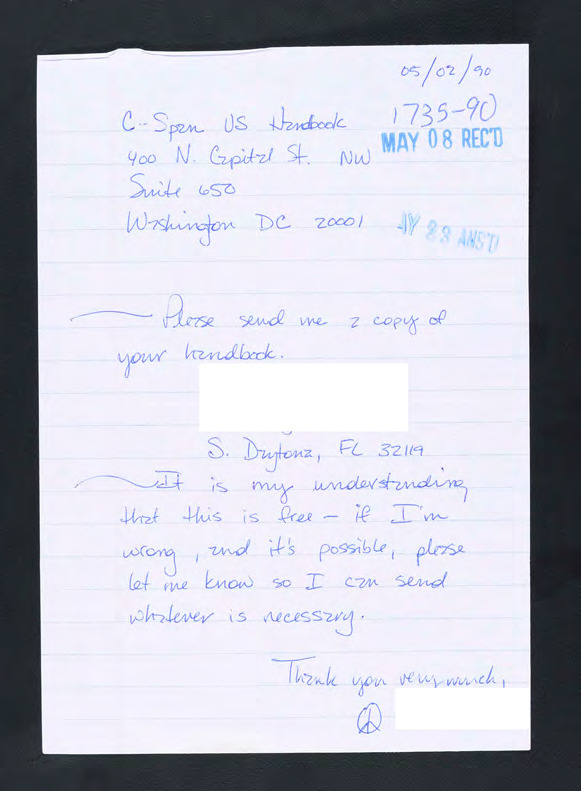 05/02/90
1735-90
MAY 08 REC'D
C-Span US Handbook
400 N. Capital St. NW
Suite 650
Washington DC 20001
AY 23 ANS'D
Please send me a copy of
your handbook.
S. Daytona, FL 32119
It is my understanding
that this is free - if I'm
wrong, and it's possible, please
let me know so I can send
whatever is necessary.
Thank you very much,